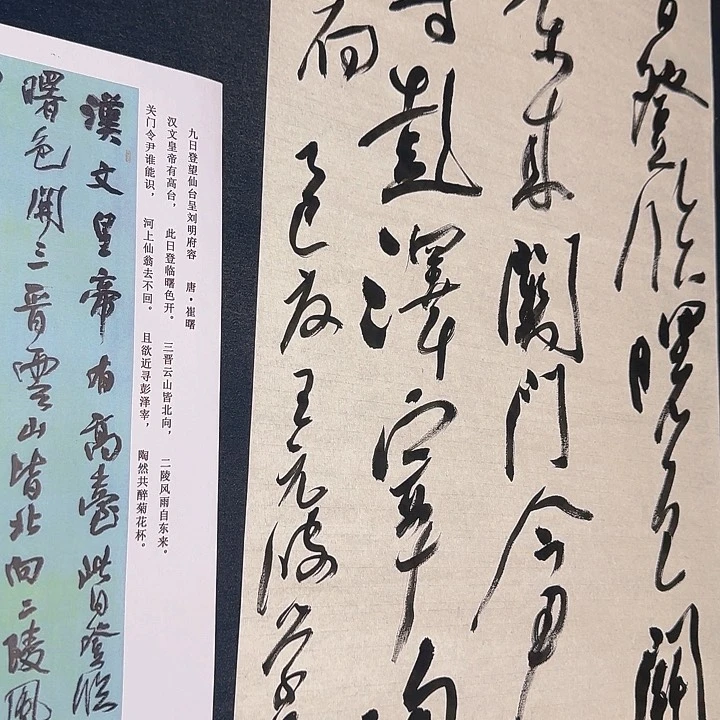 日登臨曙色開
東来關門令尹
彭澤宰陶
乙巳
九日登望仙台呈刘明府容 唐·崔曙
汉文皇帝有高台， 此日登临曙色开。 三晋云山皆北向， 二陵风雨自东来。
关门令尹谁能识， 河上仙翁去不回。 且欲近寻彭泽宰， 陶然共醉菊花杯。
漢文皇帝有高臺此日登臨
曙色開三晉雲山皆北向二陵風